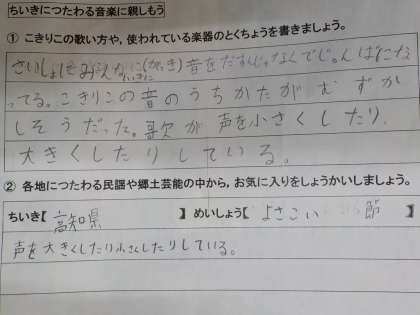 ちいきにつたわる音楽に親しもう
① こきりこの歌い方や，使われている楽器のとくちょうを書きましょう。
さいしょ (がっき) 音をだすんじゃなくてじゅんばんにな
ってる。こきりこの音のうちかたがむずか
しそうだった。歌が声を小さくしたり、
大きくしたりしている。
② 各地につたわる民謡や郷土芸能の中から，お気に入りをしょうかいしましょう。
ちいき【 高知県 】 めいしょう【 よさこい 節 】
声を大きくしたり小さくしたりしている。